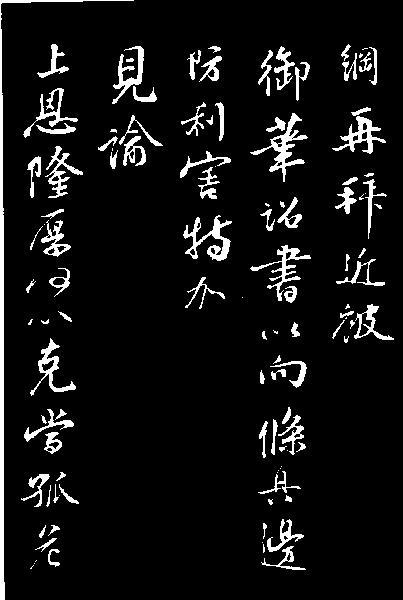 綱再拜近被
御筆詔書以向條具邊
防利害特加
見諭
上恩隆厚何以克當孤危